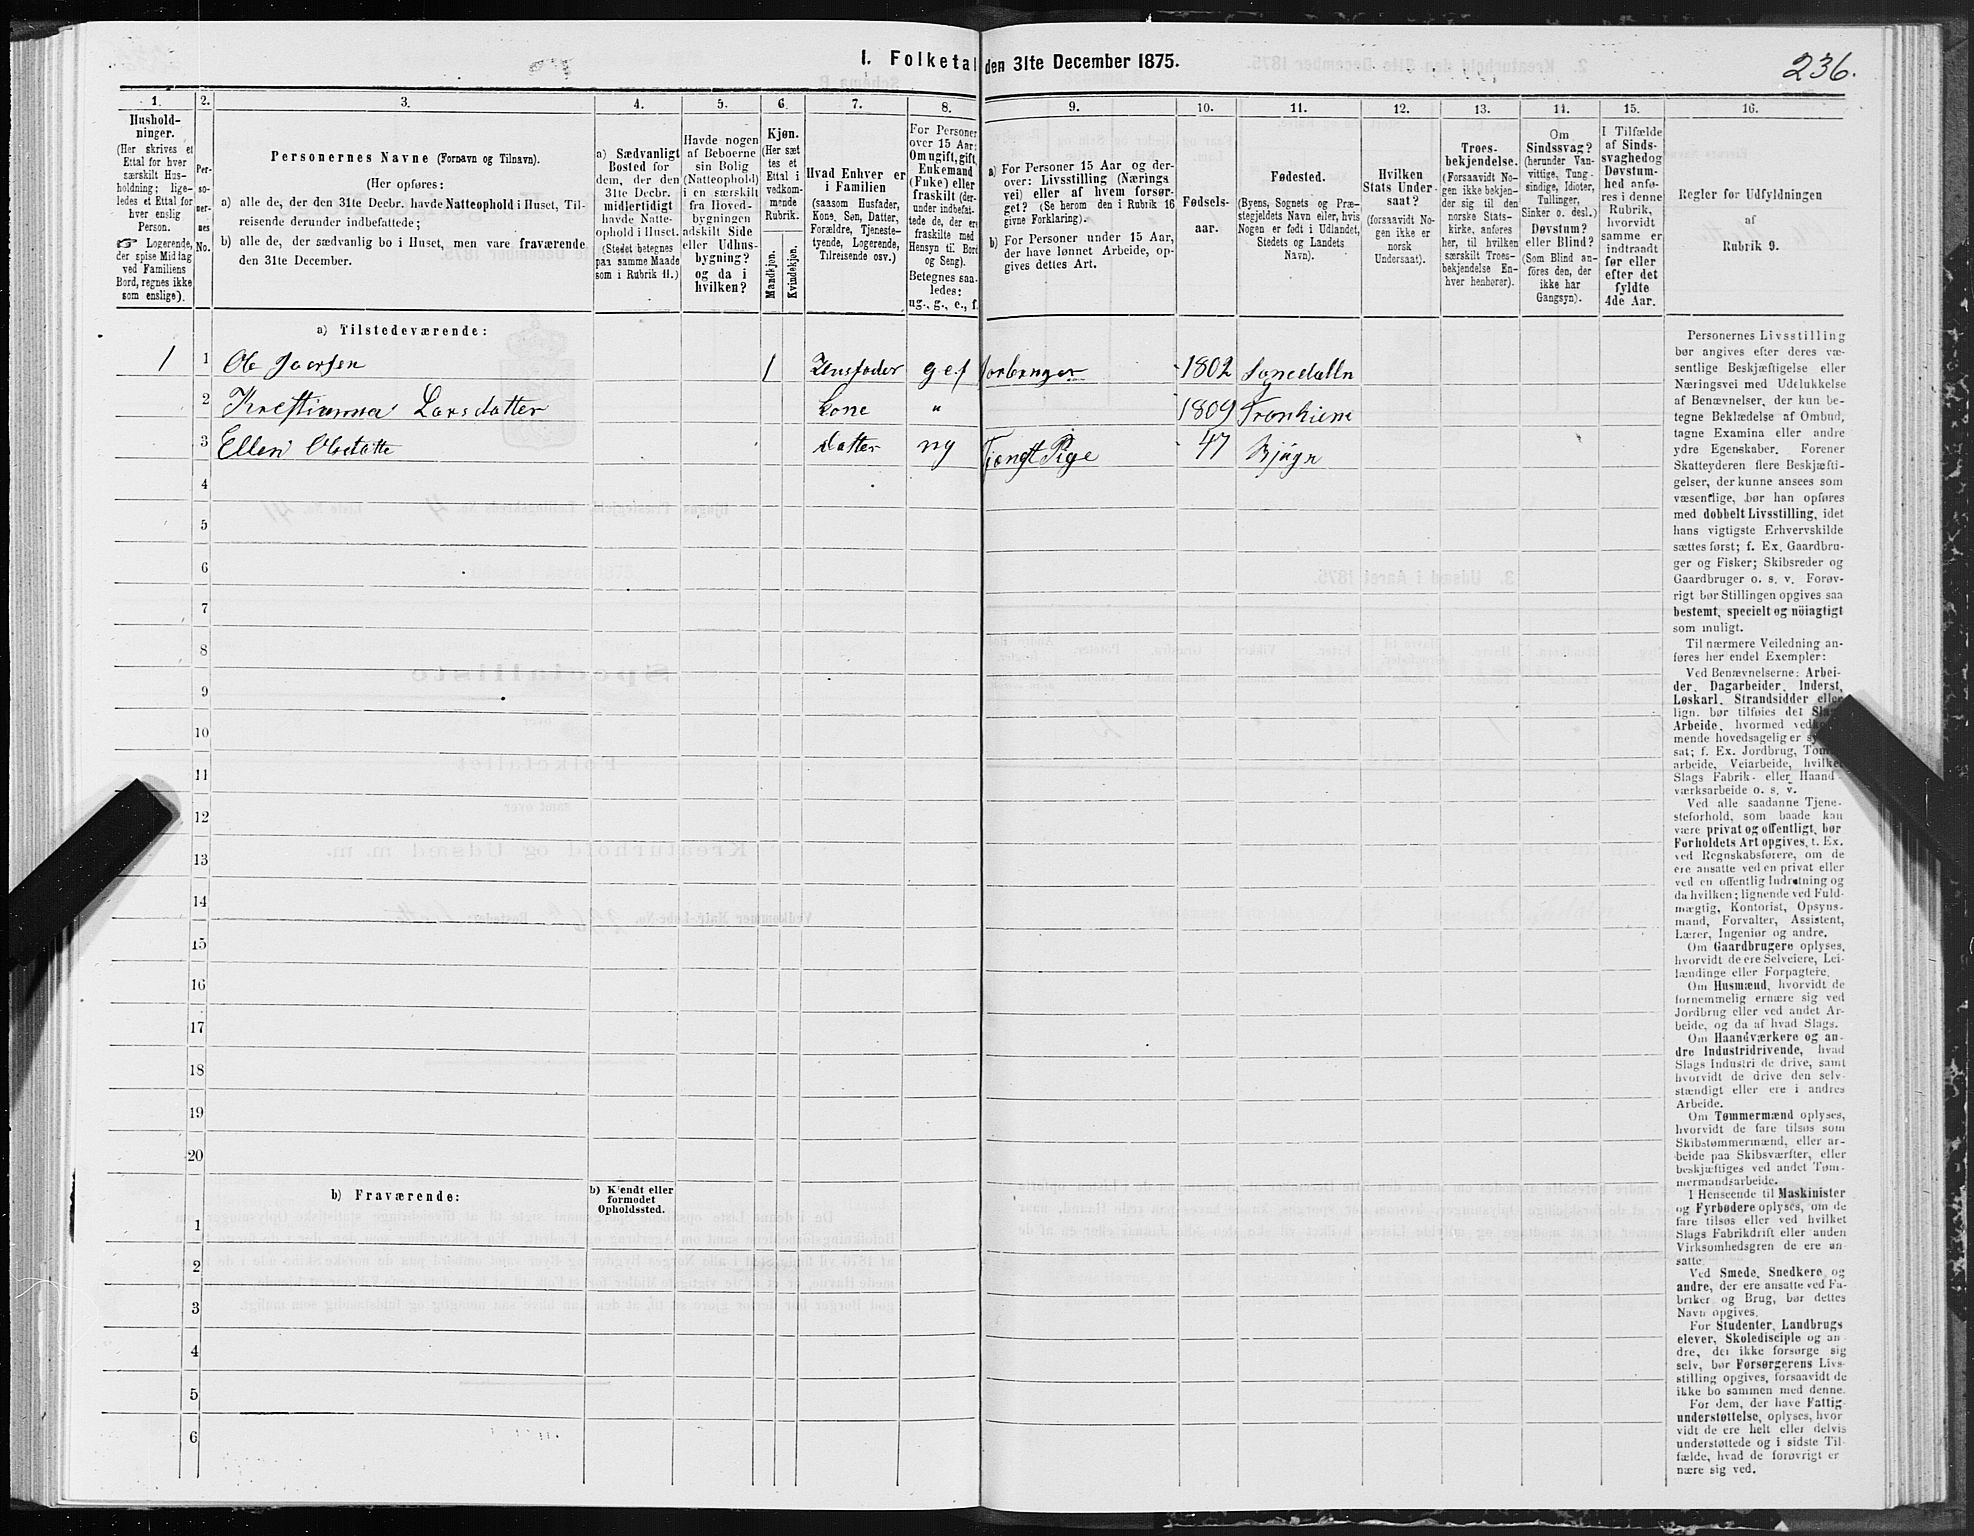 I. Folketal den 31te December 1875.
236.
1.
2.
3.
4.
5.
6.
7.
8.
9.
10.
11.
12.
13.
14.
15.
16.
Hushold-
ninger.
(Her skrives et
Ettal for hver
særskilt Hus-
holdning; lige-
ledes et Ettal for
hver enslig
Person.
☞ Logerende,
der spise Middag
ved Familiens
Bord, regnes ikke
som enslige).
Per-
so-
ner-
nes
No.
Personernes Navne (Fornavn og Tilnavn).
(Her opføres:
a) alle de, der den 31te Decbr. havde Natteophold i Huset, Til-
reisende derunder indbefattede;
b) alle de, der sædvanlig bo i Huset, men vare fraværende
den 31te December.
a) Sædvanligt
Bosted for
dem, der den
31te Decbr.
midlertidigt
havde Natte-
ophold i Huset.
(Stedet betegnes
paa samme Maade
som i Rubrik 11.)
Havde nogen
af Beboerne
sin Bolig
(Natteophold)
i en særskilt
fra Hoved-
bygningen
adskilt Side
eller Udhus-
bygning?
og da i
hvilken?
Kjøn.
(Her sæt-
tes et
Ettal i
vedkom-
mende
Rubrik.
Mandkjøn.
Kvindekjøn.
Hvad Enhver er
i Familien
(saasom Husfader,
Kone, Søn, Datter,
Forældre, Tjeneste-
tyende, Logerende,
Tilreisende osv.)
For Personer
over 15 Aar:
Om ugift, gift,
Enkemand
(Enke) eller
fraskilt (der-
under indbefat-
tede de, der ere
fraskilte med
Hensyn til Bord
og Seng).
Betegnes saa-
ledes:
ug., g., e., f.
a) For Personer 15 Aar og der-
over: Livsstilling (Nærings
vei) eller af hvem forsør-
get? (Se herom den i Rubrik 16
givne Forklaring).
b) For Personer under 15 Aar,
der have lønnet Arbeide, op-
gives dettes Art.
Fødsels-
aar.
Fødested.
(Byens, Sognets og Præ-
stegjeldets Navn eller, hvis
Nogen er født i Udlandet,
Stedets og Landets
Navn).
Hvilken
Stats Under-
saat?
(forsaavidt No-
gen ikke er
norsk
Undersaat).
Troes-
bekjendelse.
(Forsaavidt No-
gen ikke bekjen-
der sig til den
norske Stats-
kirke, anføres
her, til hvilken
særskilt Troes-
bekjendelse En-
hver henhører).
Om
Sindssvag?
(herunder Van-
vittige, Tung-
sindige, Idioter,
Tullinger,
Sinker o. desl.)
Døvstum?
eller Blind?
(Som Blind an-
føres den, der
ikke har
Gangsyn).
I Tilfælde
af Sinds-
svaghed og
Døvstum-
hed anfø-
res i denne
Rubrik,
hvorvidt
samme er
indtraadt
før eller
efter det
fyldte
4de Aar.
Regler for Udfyldningen
af
Rubrik 9.
a) Tilstedeværende:
1 1 Ole 1 g 1802
2 Larsdatter Kone " 1809 Tronhiem
3 Ellen Olsdatte datter ug Pige 47 Bjugn
4
5
6
7
8
9
10
11
12
13
14
15
16
17
18
19
20
b) Fraværende:
b) Kjendt eller
formodet
Opholdssted.
1
2
3
4
5
6
Personernes Livsstilling
bør angives efter deres væ-
sentlige Beskjæftigelse eller
Næringsvei med Udelukkelse
af Benævnelser, der kun be-
tegne Beklædelse af Ombud,
tagne Examina eller andre
ydre Egenskaber. Forener
Skatteyderen flere Beskjæfti-
gelser, der kunne ansees som
væsentlige, bør han opføres
med dobbelt Livsstilling, idet
hans vigtigste Erhvervskilde
sættes først; f. Ex. Gaardbru-
ger og Fisker; Skibsreder og
Gaardbruger o. s. v. Forøv-
rigt bør Stillingen opgives saa
bestemt, specielt og nöiagtigt
som muligt.
Til nærmere Veiledning an-
føres her endel Exempler:
Ved Benævnelserne: Arbei-
der, Dagarbeider, Inderst,
Løskarl, Strandsidder eller
lign. bør tilføies det Slags
Arbeide, hvormed vedkom-
mende hovedsagelig er syssel-
sat; f. Ex. Jordbrug, Tomte-
arbeide, Veiarbeide, hvilket
Slags Fabrik- eller Haand-
værksarbeide o. s. v.
Ved alle saadanne Tjene-
steforhold, som baade kan
være privat og offentligt, bør
Forholdets Art opgives, f. Ex.
ved Regnskabsførere, om de
ere ansatte ved en privat eller
ved en offentlig Indretning og
da hvilken; lignende ved Fuld-
mægtig, Kontorist, Opsyns-
mand, Forvalter, Assistent,
Lærer, Ingeniør og andre.
Om Gaardbrugere oplyses,
hvorvidt de ere Selveiere, Lei-
lændinge eller Forpagtere.
Om Husmænd, hvorvidt de
fornemmelig ernære sig ved
Jordbrug eller ved andet Ar-
beide, og da af hvad Slags.
Om Haandværkere og an-
dre Industridrivende, hvad
Slags Industri de drive, samt
hvorvidt de drive den selv-
stændigt eller ere i andres
Arbeide.
Om Tømmermænd oplyses,
hvorvidt de fare tilsøs som
Skibstømmermænd, eller ar-
beide paa Skibsværfter, eller
beskjæftiges ved andet Tøm-
mermandsarbeide.
I Henseende til Maskinister
og Fyrbødere oplyses, om de
fare tilsøs eller ved hvilket
Slags Fabrikdrift eller anden
Virksomhedsgren de ere an-
satte.
Ved Smede, Snedkere og
andre, der ere ansatte ved Fa-
briker og Brug, bør dettes
Navn opgives.
For Studenter, Landbrugs
elever, Skoledisciple og an-
dre, der ikke forsørge sig
selv, bør Forsørgerens Livs-
stilling opgives, forsaavidt de
ikke bo sammen med denne.
For dem, der have Fattig-
understøttelse, oplyses, hvor-
vidt de ere helt eller delvis
understøttede og i sidste Til-
fælde, hvad de forøvrigt er
nære sig ved.